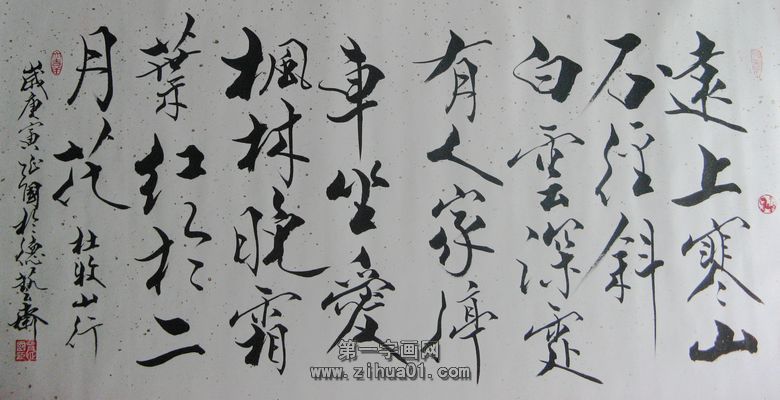 遠上寒山
石徑斜
白雲深處
有人家停
車坐愛
楓林晚霜
葉紅於二
月花 杜牧山行
歲庚寅 國於德藝齋
第一字画网
www.zihua01.com